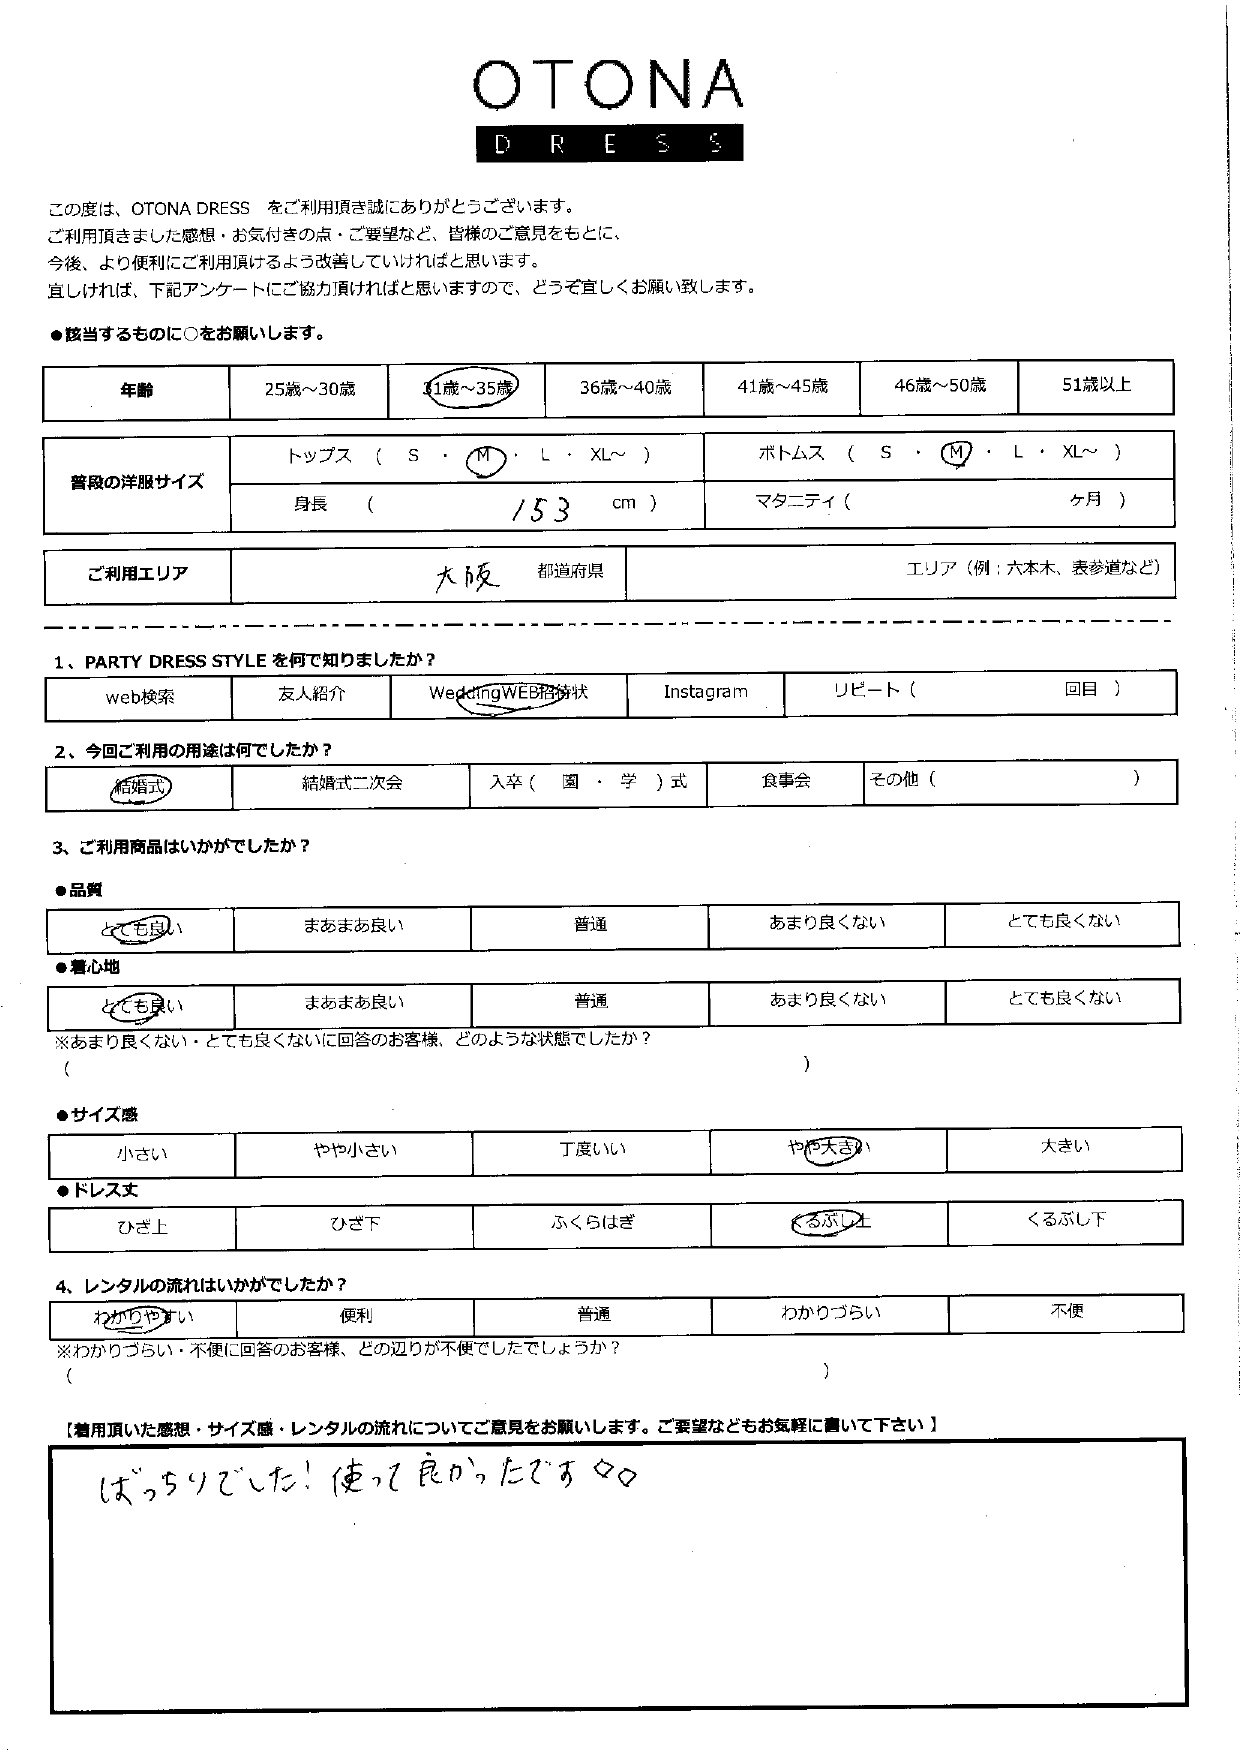 OTONA
DRESS
この度は、OTONA DRESS　をご利用頂き誠にありがとうございます。
ご利用頂きました感想・お気付きの点・ご要望など、皆様のご意見をもとに、
今後、より便利にご利用頂けるよう改善していければと思います。
宜しければ、下記アンケートにご協力頂ければと思いますので、どうぞ宜しくお願い致します。
●該当するものに○をお願いします。
年齢 25歳～30歳 31歳～35歳 36歳～40歳 41歳～45歳 46歳～50歳 51歳以上
普段の洋服サイズ トップス （ S ・ M ・ L ・ XL～ ） ボトムス （ S ・ M ・ L ・ XL～ ）
身長 （ 153 cm ） マタニティ（ ヶ月 ）
ご利用エリア 大阪 都道府県 エリア（例：六本木、表参道など）
1、PARTY DRESS STYLE を何で知りましたか？
web検索 友人紹介 WeddingWEB招待状 Instagram リピート（ 回目 ）
2、今回ご利用の用途は何でしたか？
結婚式 結婚式二次会 入卒（ 園 ・ 学 ）式 食事会 その他（ ）
3、ご利用商品はいかがでしたか？
●品質
とても良い まあまあ良い 普通 あまり良くない とても良くない
●着心地
とても良い まあまあ良い 普通 あまり良くない とても良くない
※あまり良くない・とても良くないに回答のお客様、どのような状態でしたか？
（ ）
●サイズ感
小さい やや小さい 丁度いい やや大きい 大きい
●ドレス丈
ひざ上 ひざ下 ふくらはぎ くるぶし上 くるぶし下
4、レンタルの流れはいかがでしたか？
わかりやすい 便利 普通 わかりづらい 不便
※わかりづらい・不便に回答のお客様、どの辺りが不便でしたでしょうか？
（ ）
【着用頂いた感想・サイズ感・レンタルの流れについてご意見をお願いします。ご要望などもお気軽に書いて下さい 】
ばっちりでした！使って良かったです◇◇